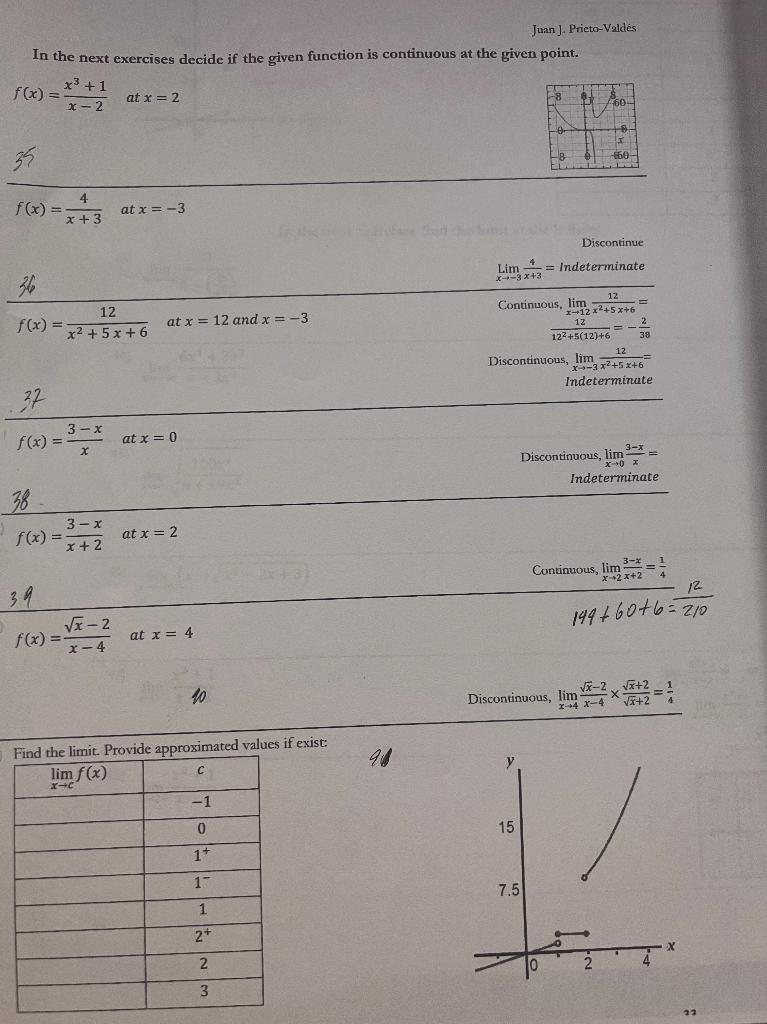 Juan J. Prieto-Valdés
In the next exercises decide if the given function is continuous at the given point.
f(x) = (x³ + 1)/(x − 2) at x = 2
8 8 60
0 8
x
-8 -60
35
f(x) = 4/(x + 3) at x = −3
Discontinue
Lim x→−3 4/(x+3) = Indeterminate
36
f(x) = 12/(x² + 5 x + 6) at x = 12 and x = −3
Continuous, lim x→12 12/(x²+5 x+6) =
12/(12²+5(12)+6) = −2/38
Discontinuous, lim x→−3 12/(x²+5 x+6) =
Indeterminate
37
f(x) = (3 − x)/x at x = 0
Discontinuous, lim x→0 (3−x)/x =
Indeterminate
38
f(x) = (3 − x)/(x + 2) at x = 2
Continuous, lim x→2 (3−x)/(x+2) = 1/4
39
144 + 60 + 6 = 12/210
f(x) = (√x − 2)/(x − 4) at x = 4
40
Discontinuous, lim x→4 (√x−2)/(x−4) × (√x+2)/(√x+2) = 1/4
Find the limit. Provide approximated values if exist:
lim x→c f(x) c
−1
0
1⁺
1⁻
1
2⁺
2
3
y
15
7.5
0 2 4 x